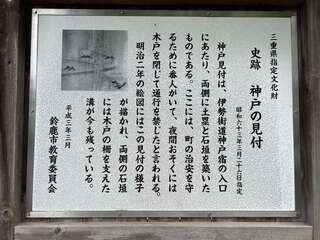 三重県指定文化財
史跡　神戸の見付
昭和六十三年三月二十七日指定
神戸見付は、伊勢街道神戸宿の入口
にあたり、両側に土塁と石垣を築いた
ものである。ここには、町の治安を守
るために番人がいて、夜間おそくには
木戸を閉じて通行を禁じたと言われる。
明治二年の絵図にはこの見付の様子
が描かれ、両側の石垣
には木戸の柵を支えた
溝が今も残っている。
平成三年三月
鈴鹿市教育委員会